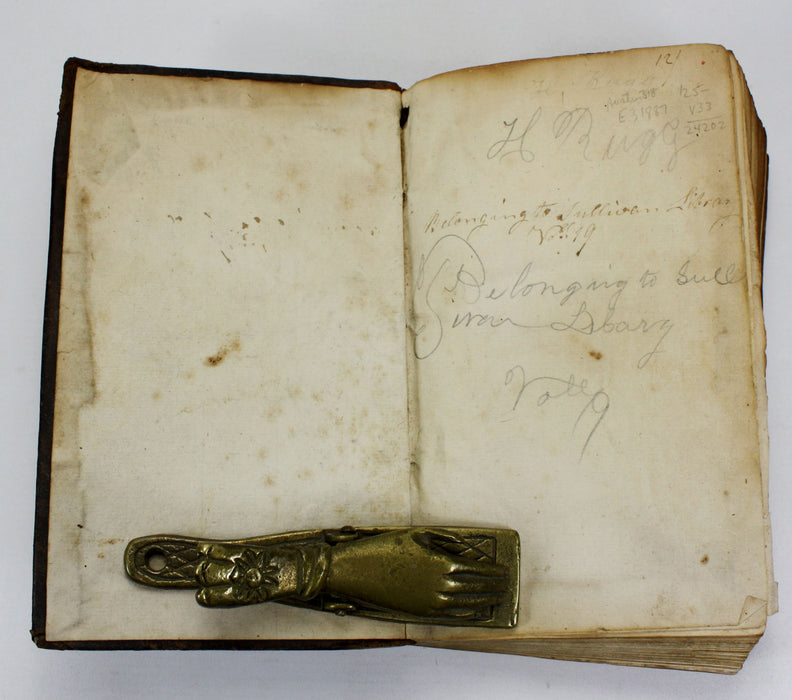 121
H Rugg
125-
E31987
V33
24202
H Rugg
Belonging to Sullivan Librar
Voll 9
Belonging to Sull
ivan Libary
Voll 9